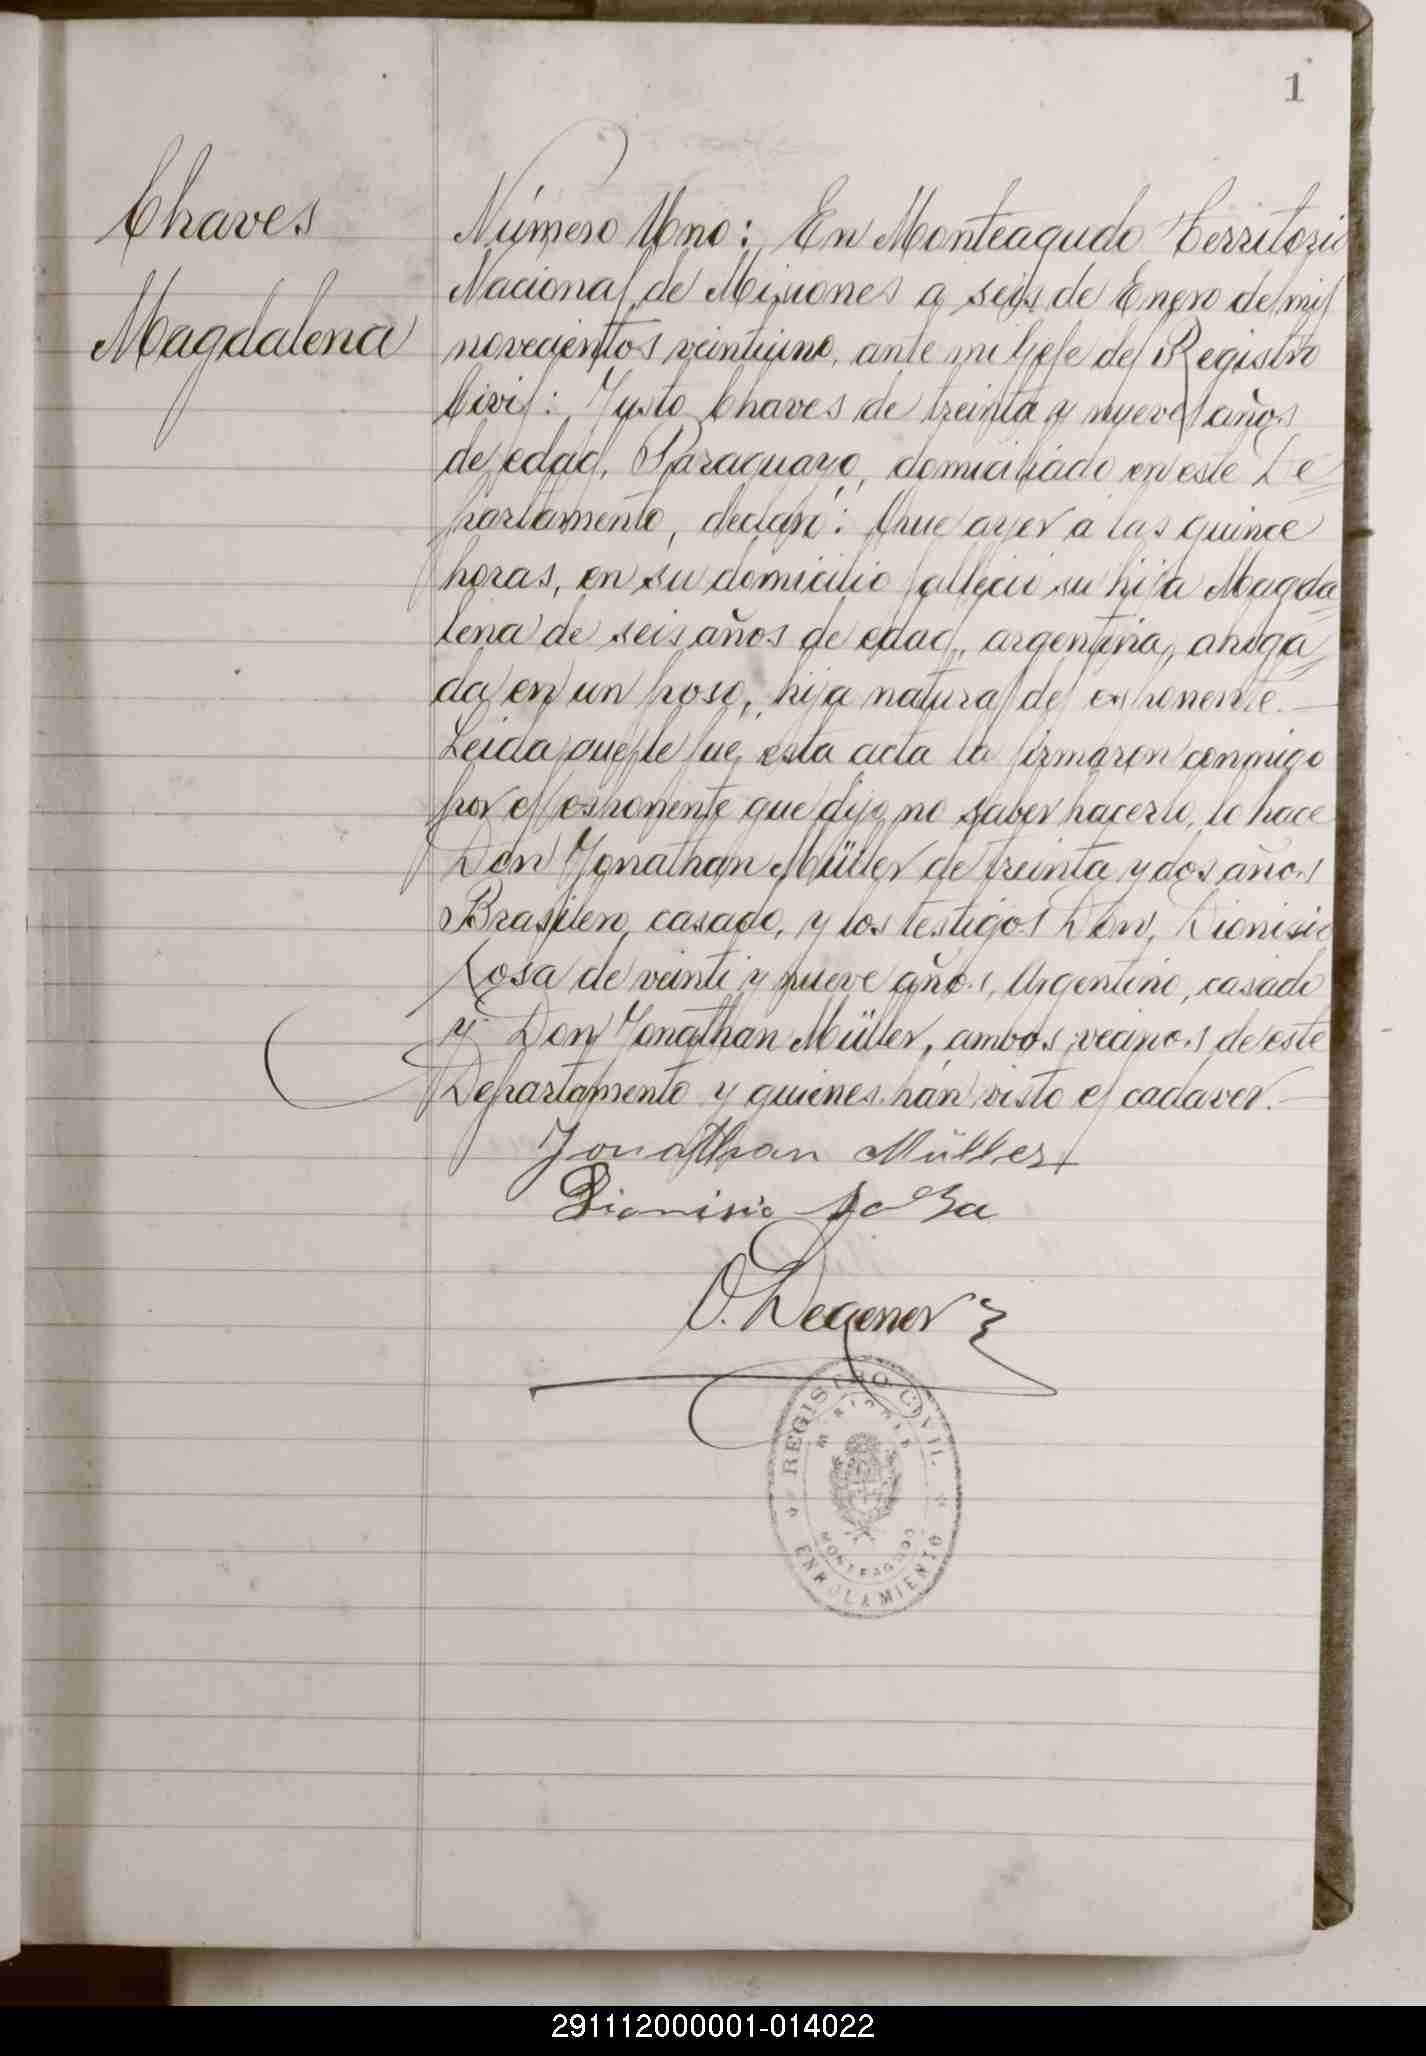 1
Chaves
Magdalena
Número Uno: En Monteagudo Territorio
Nacional de Misiones a seis de Enero de mil
novecientos veintiuno, ante mi Gefe del Registro
Civil: Justo Chaves de treinta y nueve años
de edad, Paraguayo, domiciliado en este De=
partamento, declaró: Que ayer a las quince
horas, en su domicilio falleció su hija Magda=
lena de seis años de edad, argentina, ahoga=
da en un poso, hija natural del exponente.—
Leida que le fue esta acta la firmaron conmigo
por el exponente que dijo no saber hacerlo, lo hace
Don Jonathan Müller de treinta y dos años
Brasilero casado, y los testigos Don, Dionisio
Sosa de veinti y nueve años, Argentino, casado
y Don Jonathan Müller, ambos vecinos de este
Departamento y quienes hán visto el cadaver.—
Jonathan Müller
Dionisio Sosa
O. Degener
REGISTRO CIVIL
MISIONES
MONTEAGUDO
ENROLAMIENTO
291112000001-014022